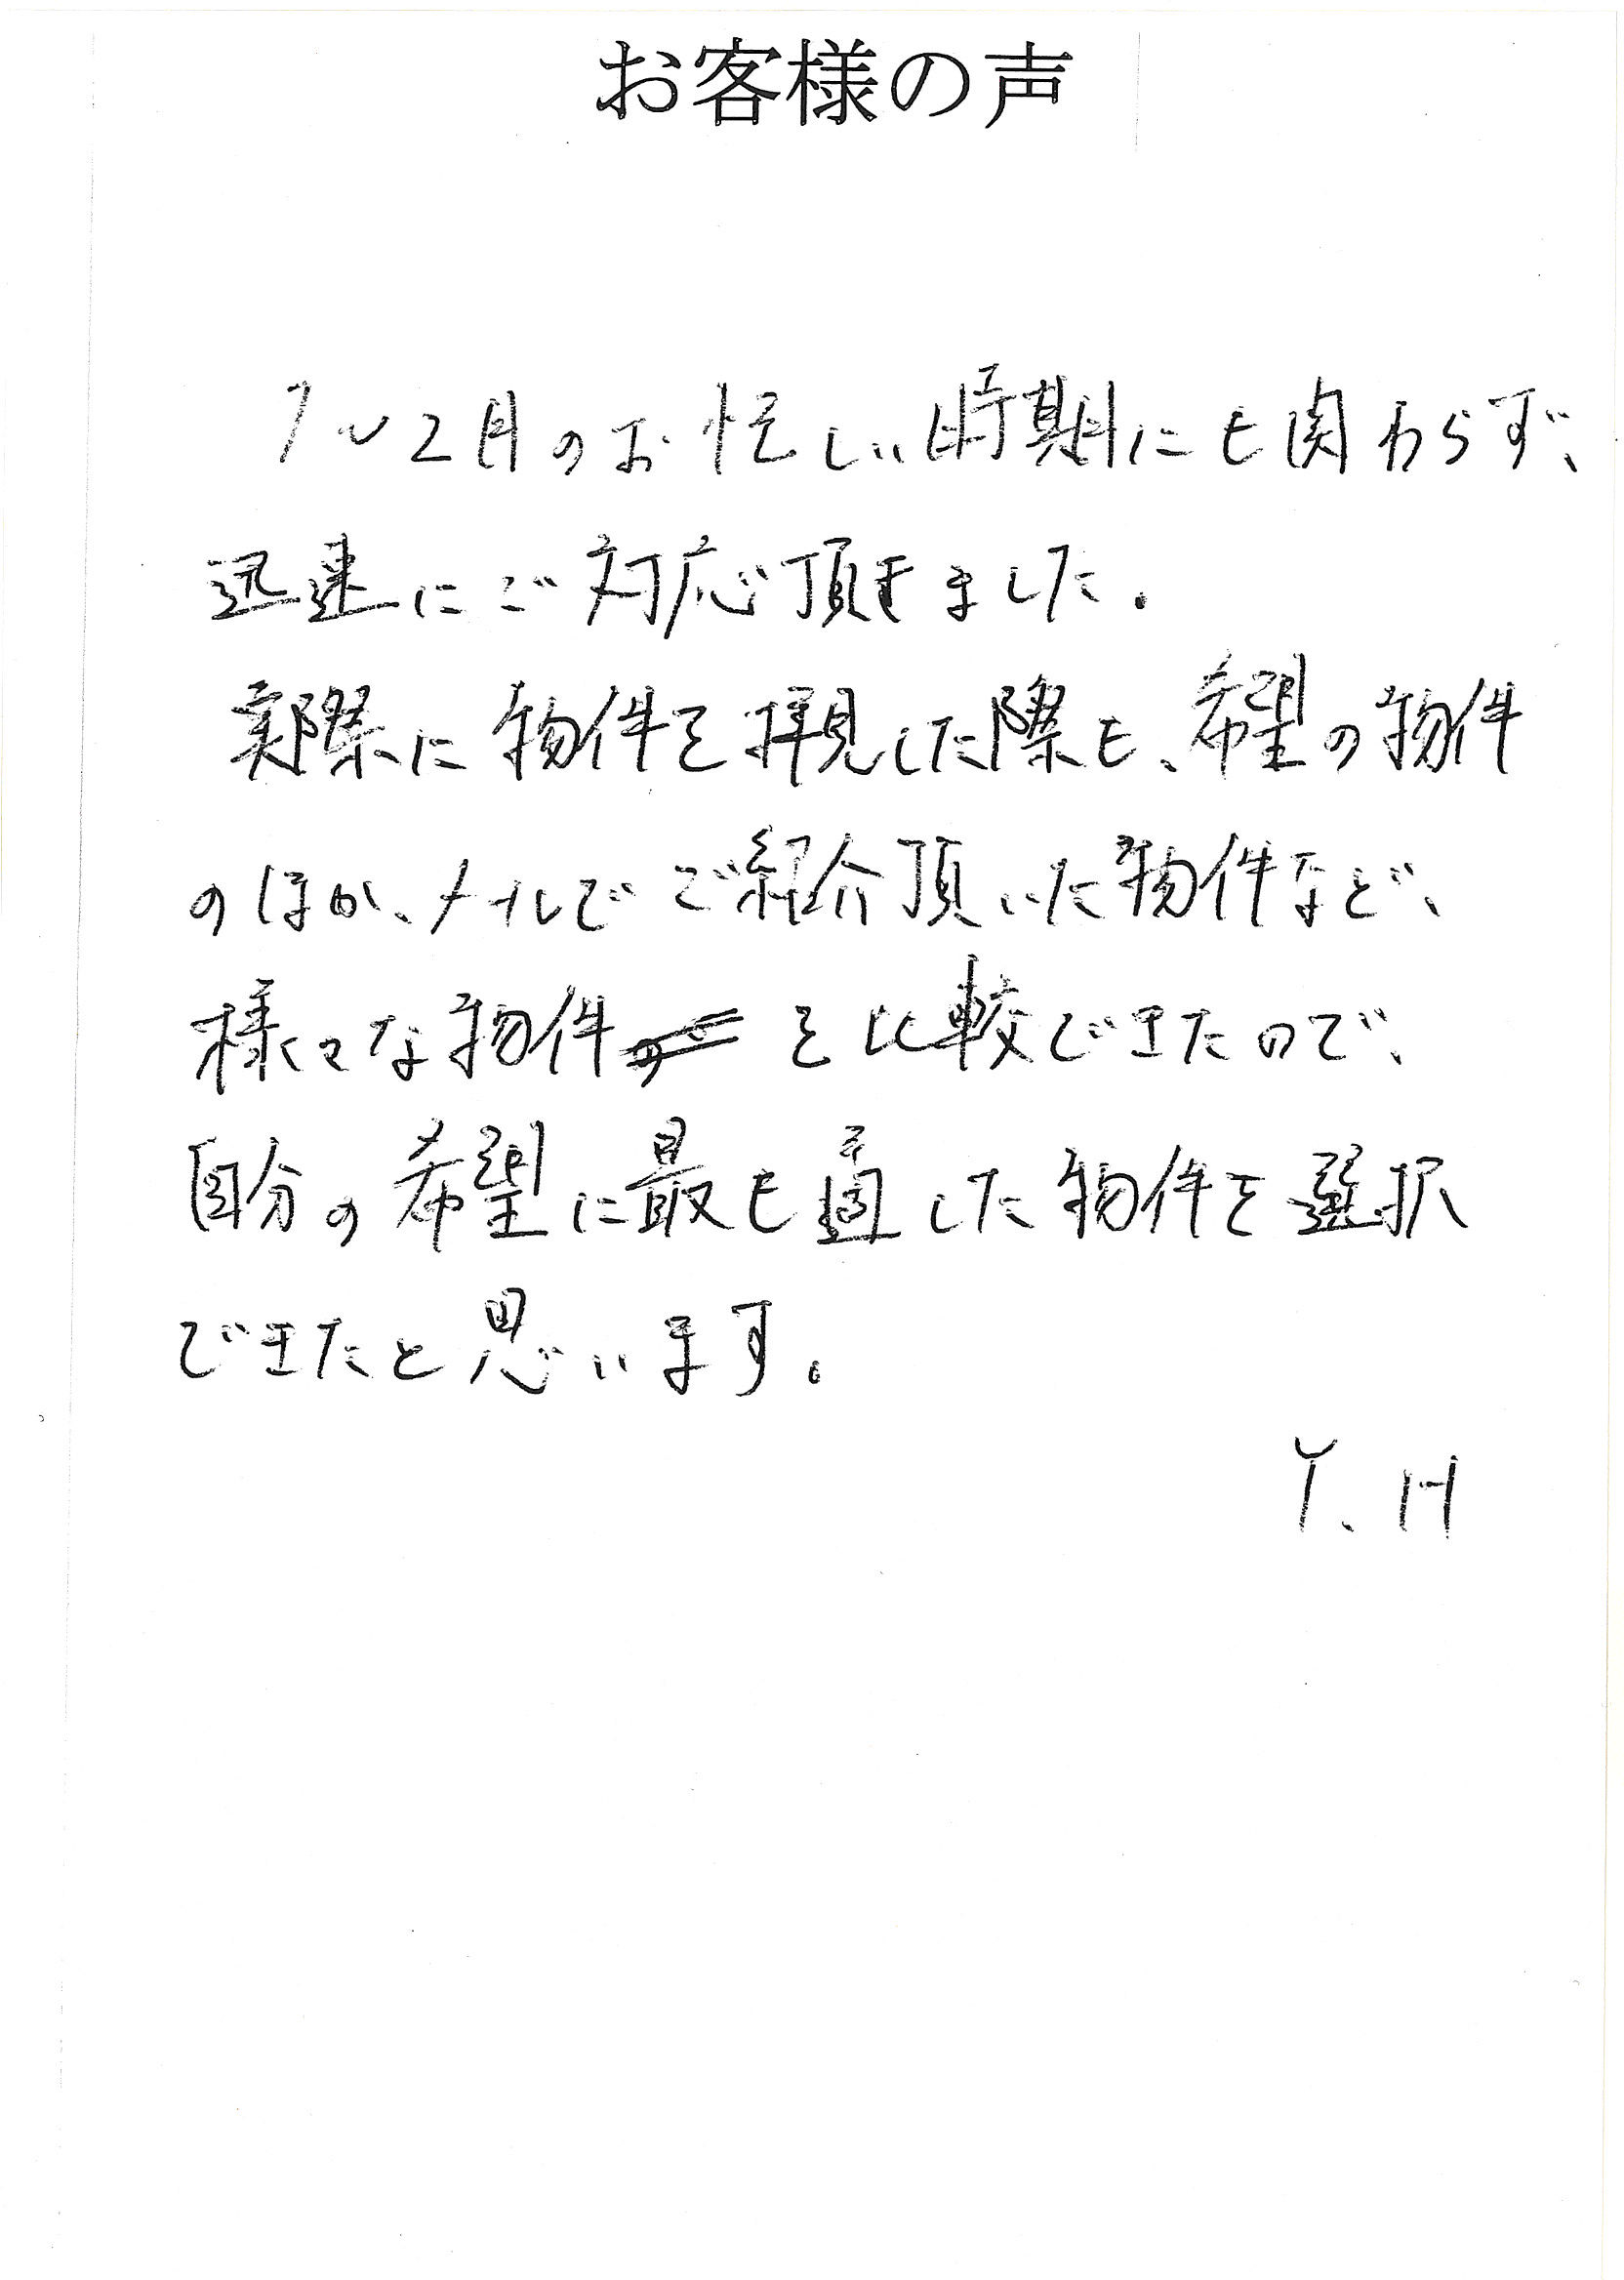 お客様の声
1~2月のお忙しい時期にも関わらず、
迅速にご対応頂きました。
実際に物件を拝見した際も、希望の物件
のほか、メールでご紹介頂いた物件など、
様々な物件を比較できたので、
自分の希望に最も適した物件を選択
できたと思います。
Y.H